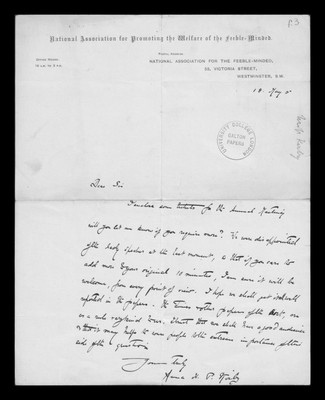 p3
National Association for Promoting the Welfare of the Feeble-Minded.
NATIONAL ASSOCIATION FOR THE FEEBLE-MINDED,
53, VICTORIA STREET,
WESTMINSTER, S.W.
18. May
UNIVERSITY COLLEGE LONDON
GALTON
PAPERS
Dear Sir
I enclose some tickets for the Annual Meeting
will you let me know if you require more? We were disappointed
of the lady speaker at the last moment, so that if you care to
add more to your original 10 minutes, I am sure it will be
welcome, from every point of view. I hope we shall get well
reported in the papers. The Times takes papers of the sort, or
as a rule has sent one. I trust that we shall have a good audience
& that it may help to
side of the question.
Yours truly
Amelia H. P. Kirby